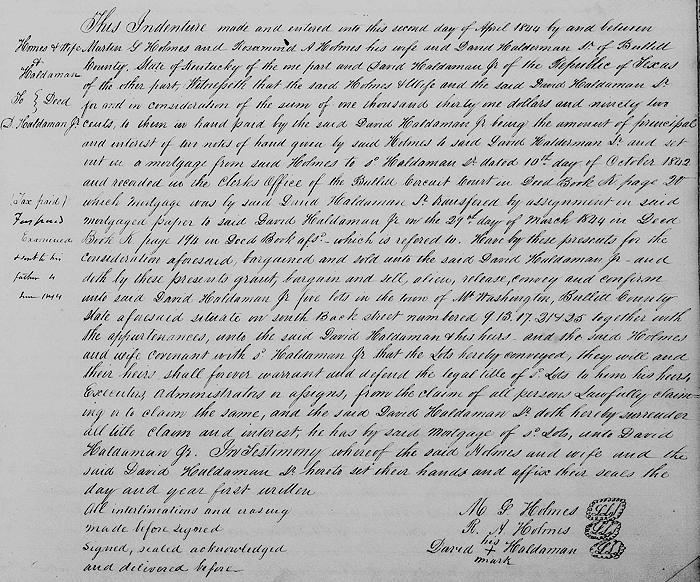 This Indenture made and entered into this second day of April 1844 by and between
Homes & Wife
&
Haldaman
To } Deed
D. Haldaman Jr
Martin G Holmes and Rosamind A Holmes his wife and David Haldaman Sr of Bullitt
County, State of Kentucky of the one part and David Haldaman Jr of the Republic of Texas
of the other part, Witnesseth that the said Holmes & Wife and the said David Haldaman Sr
for and in consideration of the sum of one thousand thirty one dollars and ninety two
cents, to them in hand paid by the said David Haldaman Jr being the amount of principal
and interest of two notes of hand given by said Holmes to said David Haldaman Sr and set
out in a mortgage from said Holmes to sd Haldaman Sr dated 10th day of October 1842
and recorded in the Clerks Office of the Bullitt Circuit Court in Deed Book K page 20
(Tax paid)
Fees paid
Examined
& sent to his
father
June 1844
which mortgage was by said David Haldaman Sr transfered by assignment in said
mortgaged paper to said David Haldaman Jr on the 29th day of March 1844 in Deed
Book K page 194 in Deed Book afsd - which is refered to. Know by these presents for the
consideration aforesaid, bargained and sold unto the said David Haldaman Jr - and
doth by these presents grant, bargain and sell, alien, release, convey and confirm
unto said David Haldaman Jr five lots in the town of Mt Washington, Bullitt County
State aforesaid situate on south Back street numbered 9. 13. 17. 21 & 25 together with
the appurtenances, unto the said David Haldaman & his heirs - and the said Holmes
and wife covenant with sd Haldaman Jr that the Lots hereby conveyed, they will and
their heirs shall forever warrant and defend the legal title of sd Lots to him his heirs,
Executors, administrators or assigns, from the claim of all persons Lawfully claim-
ing or to claim the same, and the said David Haldaman Sr doth hereby surrender
all title claim and interest, he has by said Mortgage of sd Lots, unto David
Haldaman Jr. In Testimony whereof the said Holmes and wife and the
said David Haldaman Sr hereto set their hands and affix their seals the
day and year first written
All interlineations and erasing
made before signed
Signed, sealed acknowledged
and delivered before
M G Holmes
R. A Holmes
his
David + Haldaman
mark